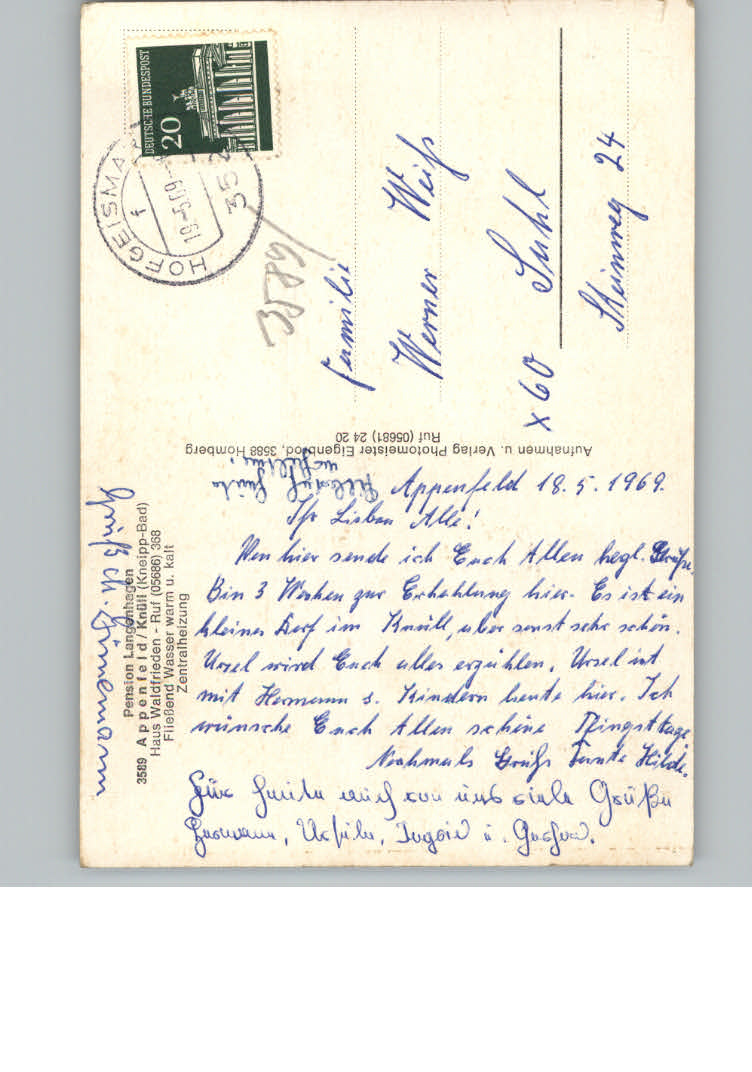 Appenfeld 18.5.1969.
Ihr Lieben Alle!
Von hier sende ich Euch Allen hrzl. Grüße.
Bin 3 Wochen zur Erhohlung hier. Es ist ein
kleines Dorf im Knüll, aber sonst sehr schön.
Ursel wird Euch alles erzählen. Ursel ist
mit Hermann s. Kindern heute hier. Ich
wünsche Euch Allen schöne Pfingsttage
Nochmals Grüße Tante Hilde.
Für heute auch von uns viele Grüße
Hermann, Ursula, Ingrid u. Gerhard.
Pension Langenhagen
3589 Appenfeld / Knüll (Kneipp-Bad)
Haus Waldfrieden - Ruf (05686) 368
Fließend Wasser warm u. kalt
Zentralheizung
Aufnahmen u. Verlag Photomeister Eigenbrod, 3588 Homberg
Ruf (05681) 24 20
DEUTSCHE BUNDESPOST
20
HOFGEISMAR
f
19.-5.69
352
3589
Familie
Werner Weiß
X60 Suhl
Steinweg 24